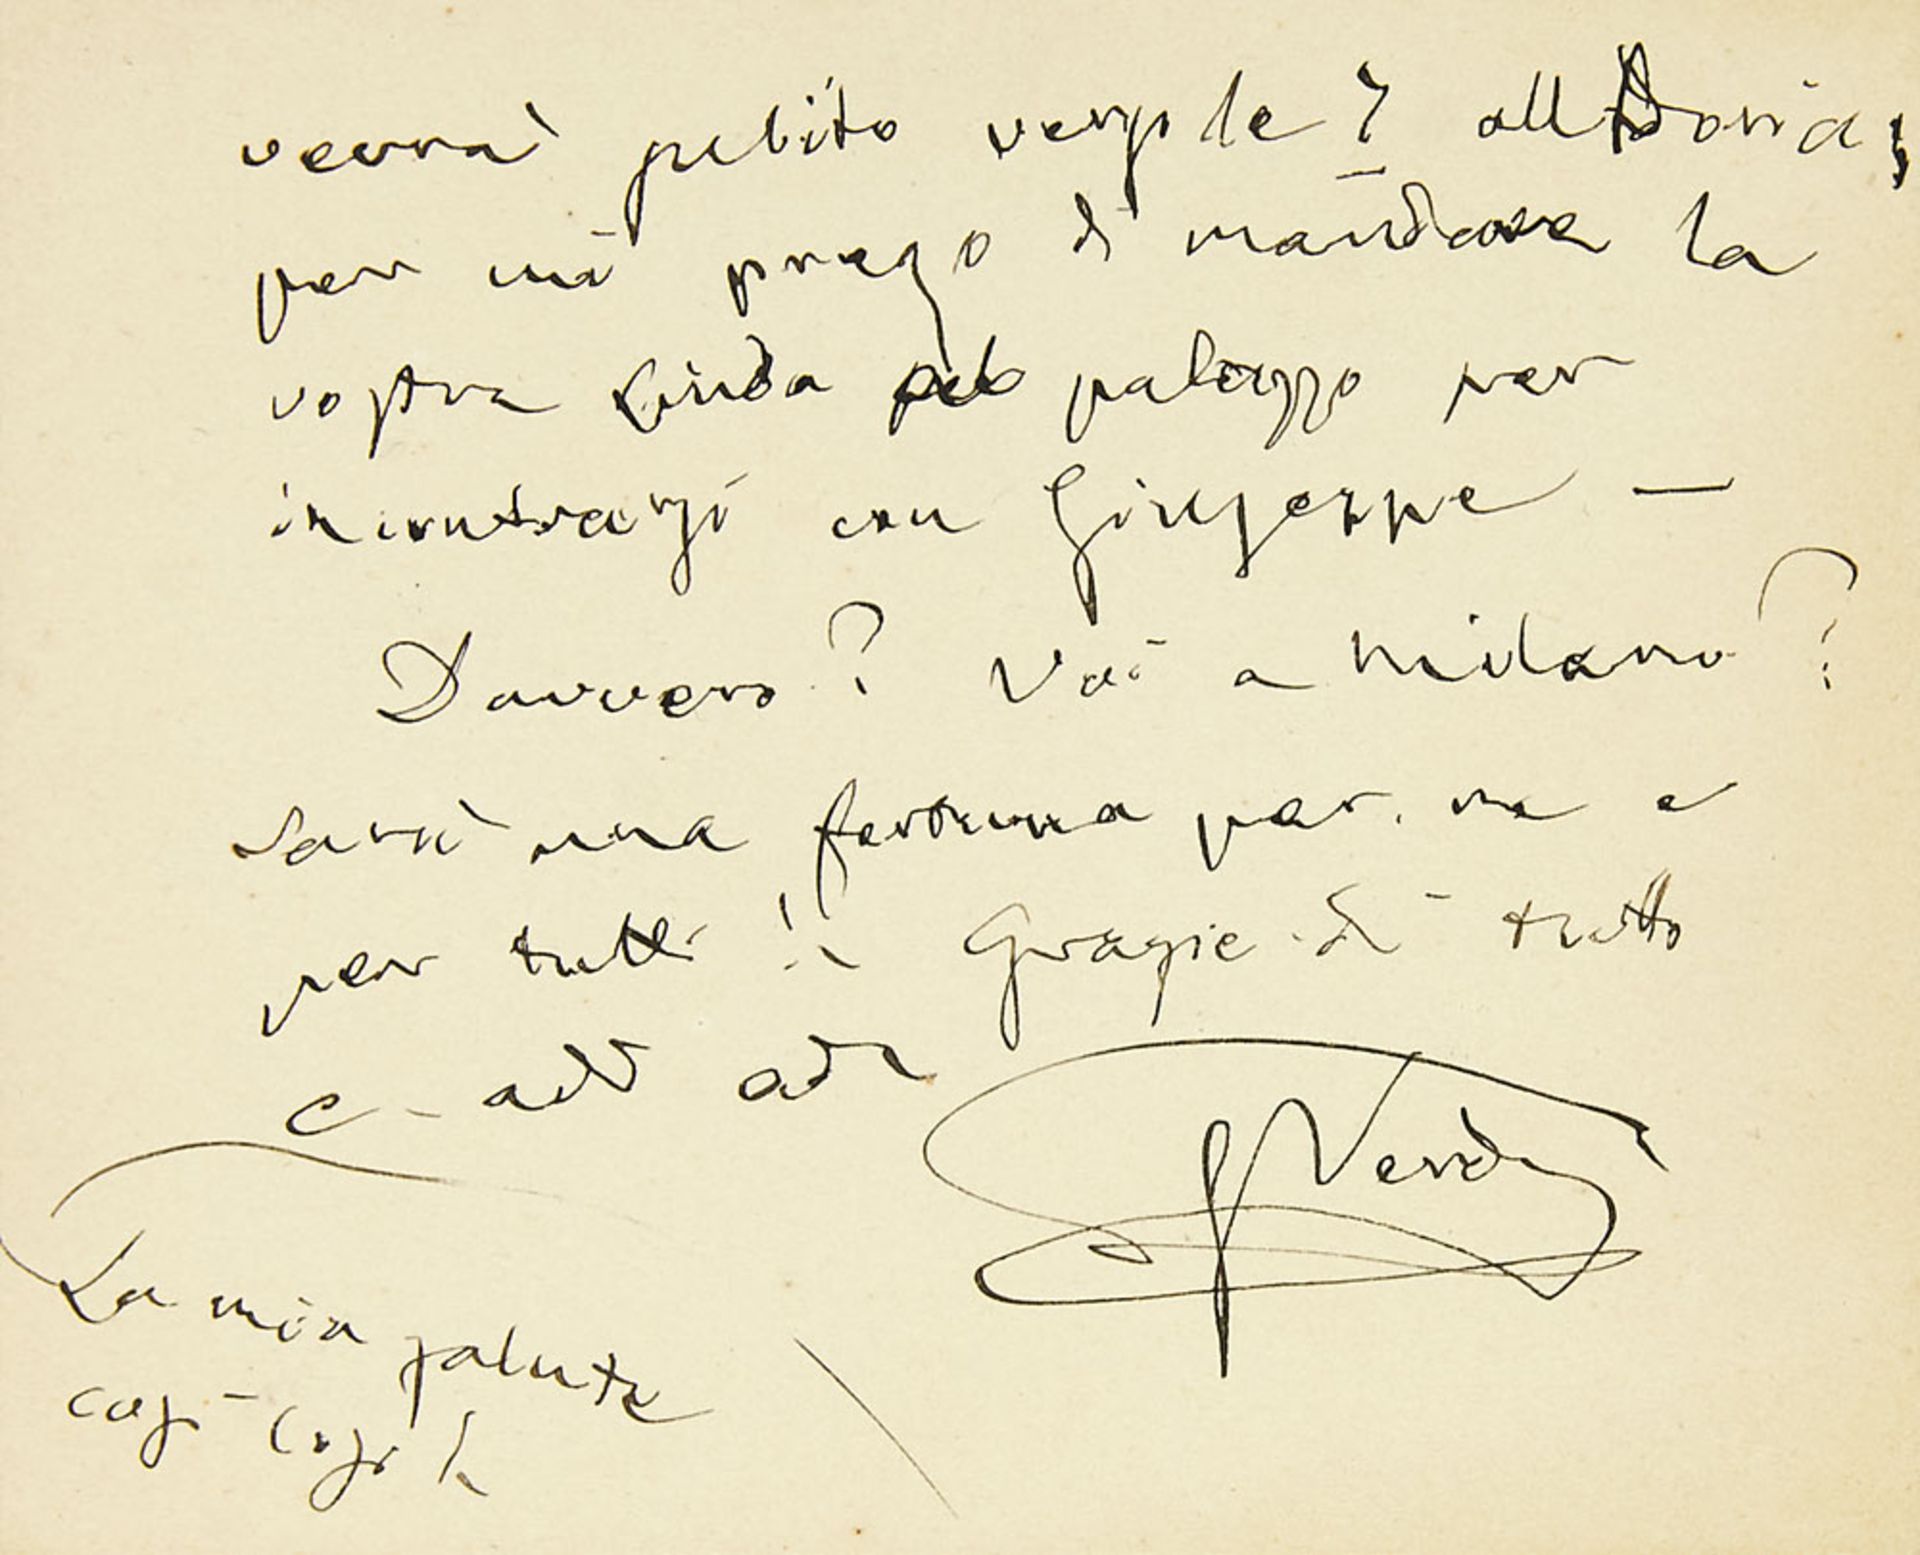 verrà subito verso le 7 all Doria;
per cui prego di mandare la
vostra Linda nel palazzo per
incontrarsi con Giuseppe —
Davvero? Voi a Milano?
Sarà una fortuna per me e
per tutti! Grazie di tutto
e – add add
G Verdi
La mia salute
così così!